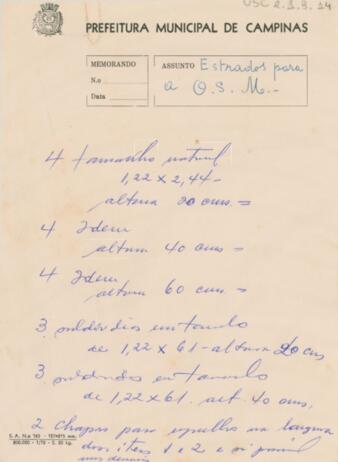 USC 2.1.9.24
PREFEITURA MUNICIPAL DE CAMPINAS
MEMORANDO
N.o
Data
ASSUNTO Estrados para
a O. S. M. -
4 tamanho natural
1,22 x 2,44 -
altura 20 cms =
4 Idem
altura 40 cms =
4 Idem
altura 60 cms =
3
de 1,22 x 61 - altura 20 cms
3
de 1,22 x 61. alt. 40 cms,
2 chapas para na largura
dos itens 1 e 2 e
S. A. N.o 163 -
800.000 - 1/70 - S. 50 kg.